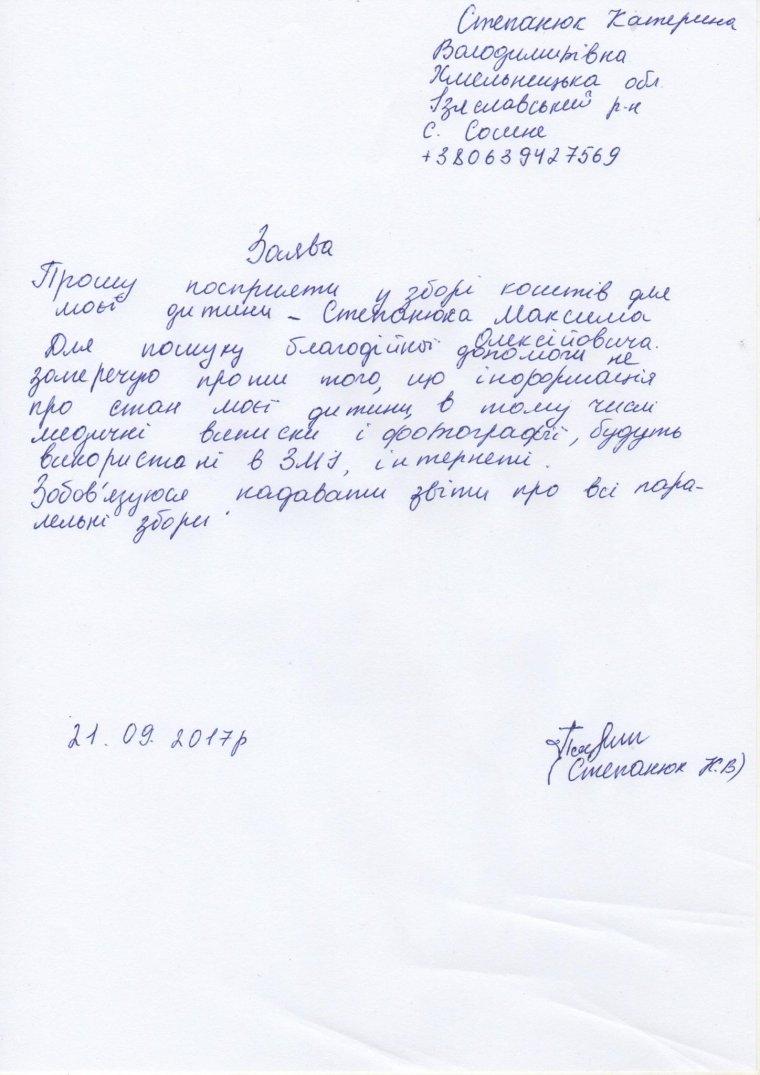 Степанюк Катерина
Володимирівна
Хмельницька обл
Ізяславський р-н
с. Сошне
+380639427569
Заява
Прошу посприяти у зборі коштів для
моєї дитини – Степанюка Максима
Олексійовича.
Для пошуку благодійної допомоги не
заперечую проти того, що інформація
про стан моєї дитини, в тому числі
медичні виписки і фотографії, будуть
використані в ЗМІ, інтернеті.
Зобов'язуюся надавати звіти про всі пара-
лельні збори.
21.09.2017р
(Степанюк К.В)